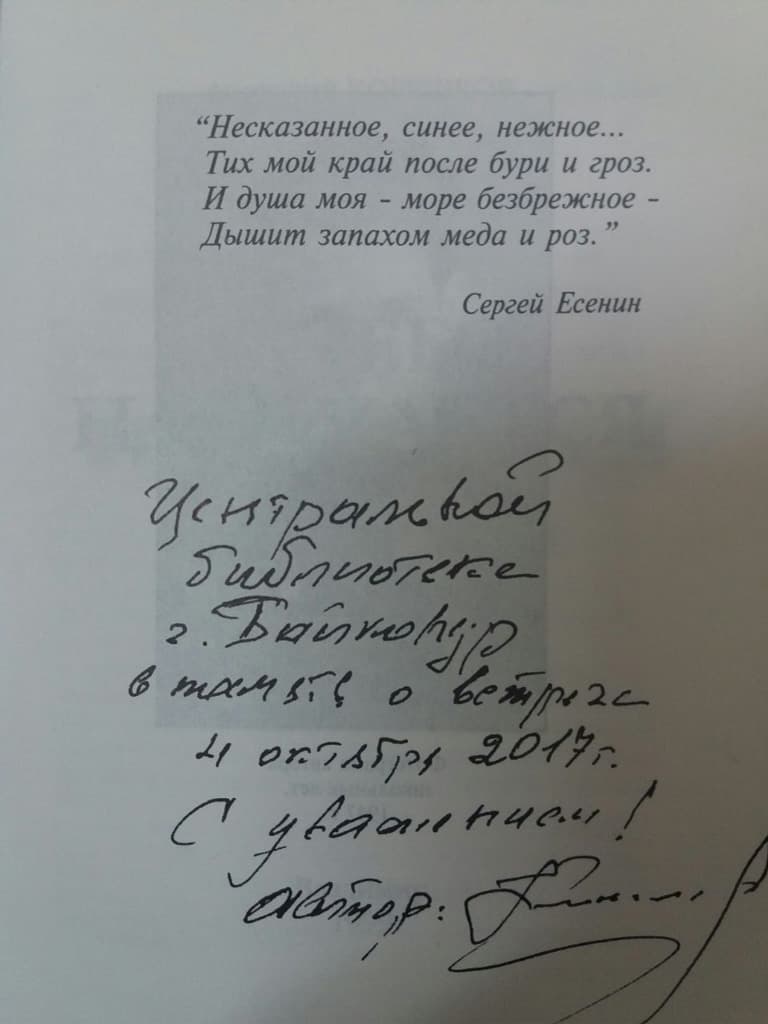 “Несказанное, синее, нежное...
Тих мой край после бури и гроз.
И душа моя - море безбрежное -
Дышит запахом меда и роз.”
Сергей Есенин
Центральной
библиотеке
г. Байконур
в память о встрече
4 октября 2017г.
С уважением!
автор: